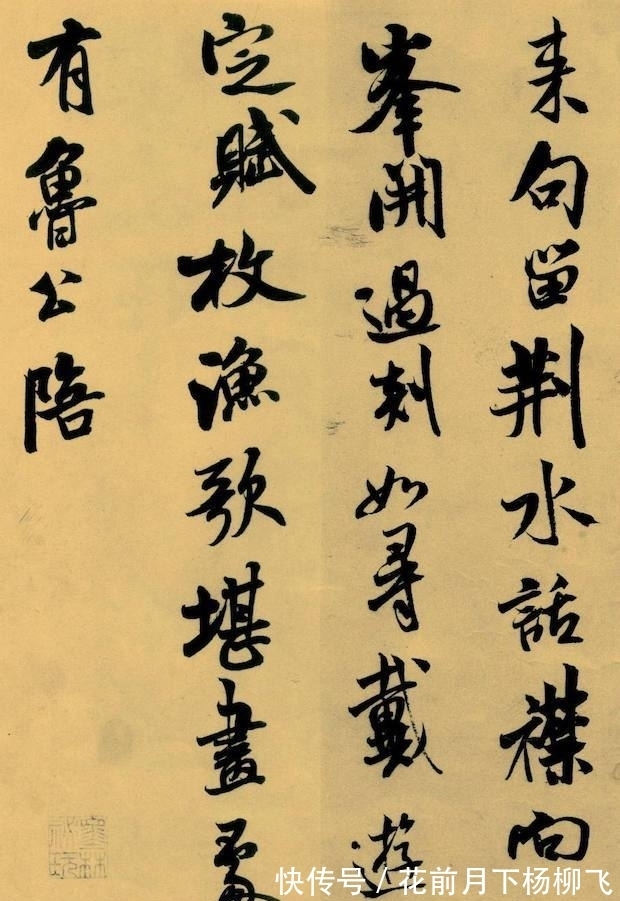 来句留荆水話襟向
峯開過剡如尋戴遊
定賦枚漁歌堪畫
有魯公陪
快传号/花前月下杨柳飞